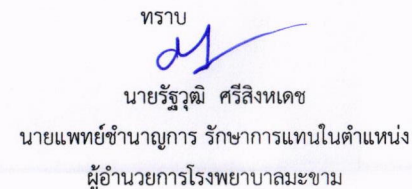 ทราบ
นายรัฐวุฒิ ศรีสิงหเดช
นายแพทย์ชำนาญการ รักษาการแทนในตำแหน่ง
ผู้อำนวยการโรงพยาบาลมะขาม